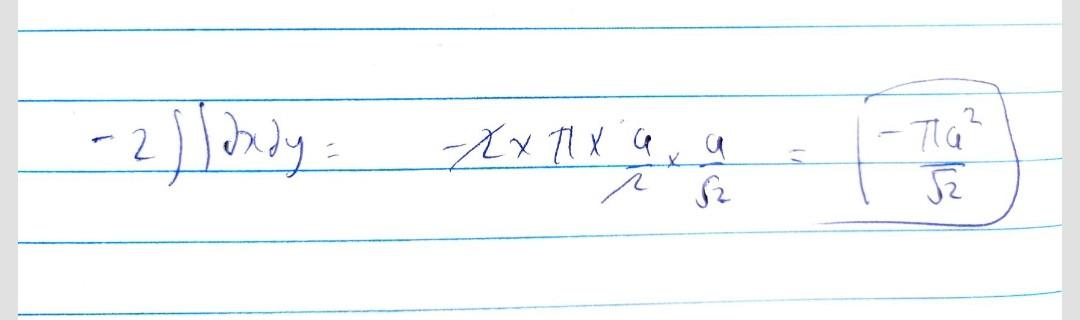 -2∬dxdy = -2 × π × a/2 × a/√2 = -πa²/√2